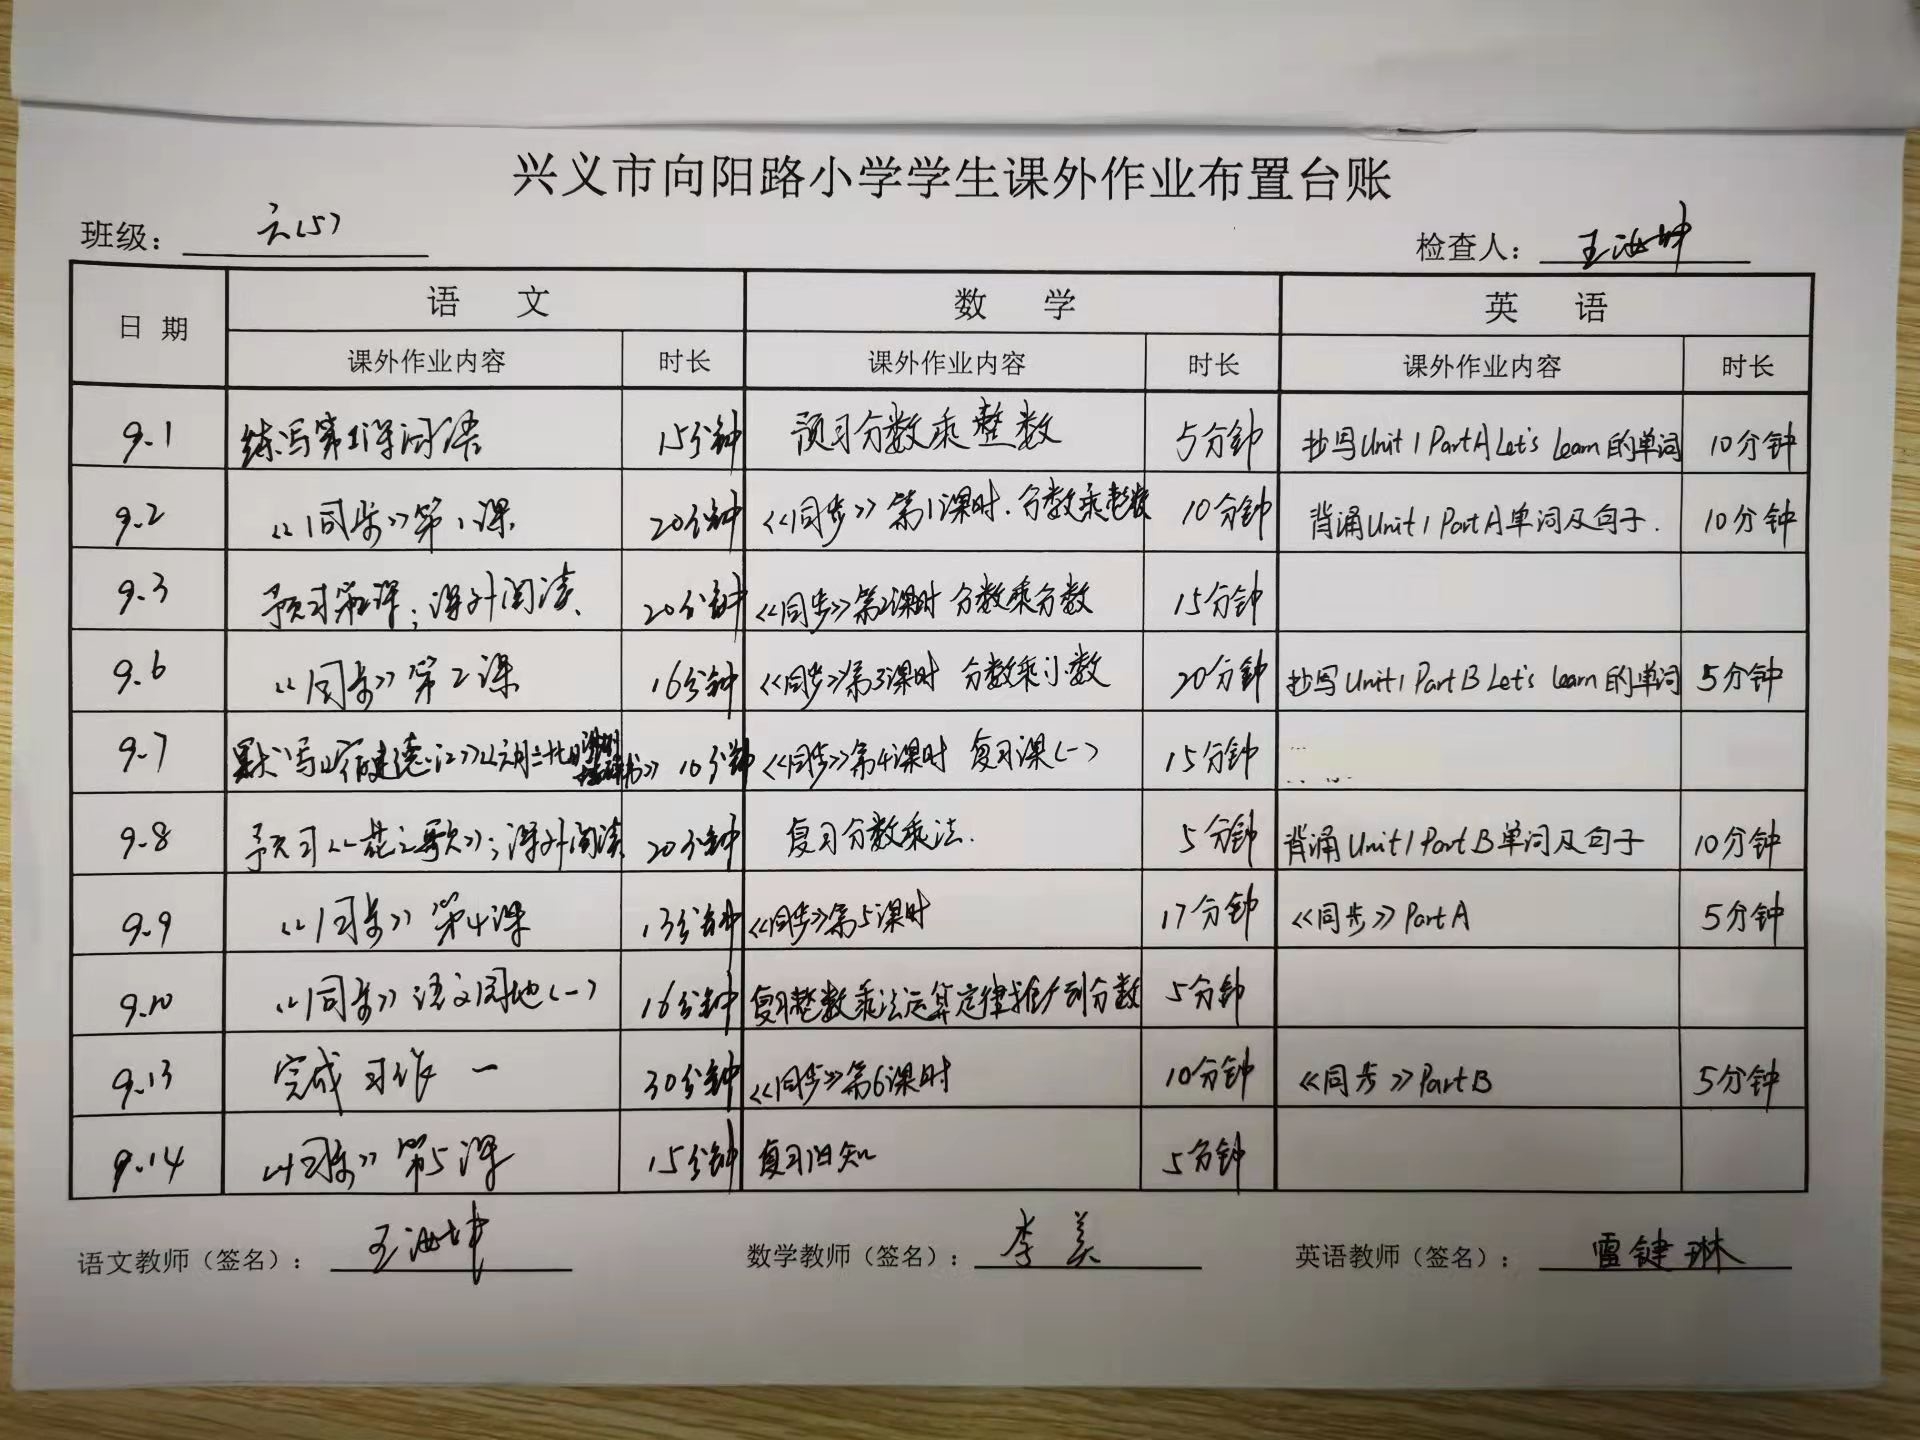 兴义市向阳路小学学生课外作业布置台账
班级： 六(5) 检查人： 王海坤
日 期 语 文 数 学 英 语
课外作业内容 时长 课外作业内容 时长 课外作业内容 时长
9.1 练写第1课词语 15分钟 预习分数乘整数 5分钟 抄写Unit 1 Part A Let's learn的单词 10分钟
9.2 《同步》第1课 20分钟 《同步》第1课时.分数乘整数 10分钟 背诵Unit 1 Part A单词及句子. 10分钟
9.3 预习第2课；课外阅读 20分钟 《同步》第2课时 分数乘分数 15分钟
9.6 《同步》第2课 16分钟 《同步》第3课时 分数乘小数 20分钟 抄写Unit 1 Part B Let's learn的单词 5分钟
9.7 默写《宿建德江》《六月二十七日望湖楼醉书》 10分钟 《同步》第4课时 复习课(一) 15分钟
9.8 预习《花之歌》；课外阅读 20分钟 复习分数乘法. 5分钟 背诵Unit 1 Part B单词及句子 10分钟
9.9 《同步》第4课 13分钟 《同步》第5课时 17分钟 《同步》Part A 5分钟
9.10 《同步》语文园地(一) 16分钟 复习整数乘法运算定律推广到分数 5分钟
9.13 完成习作一 30分钟 《同步》第6课时 10分钟 《同步》Part B 5分钟
9.14 《同步》第5课 15分钟 复习旧知 5分钟
语文教师（签名）： 王海坤 数学教师（签名）： 李美 英语教师（签名）： 雷键琳